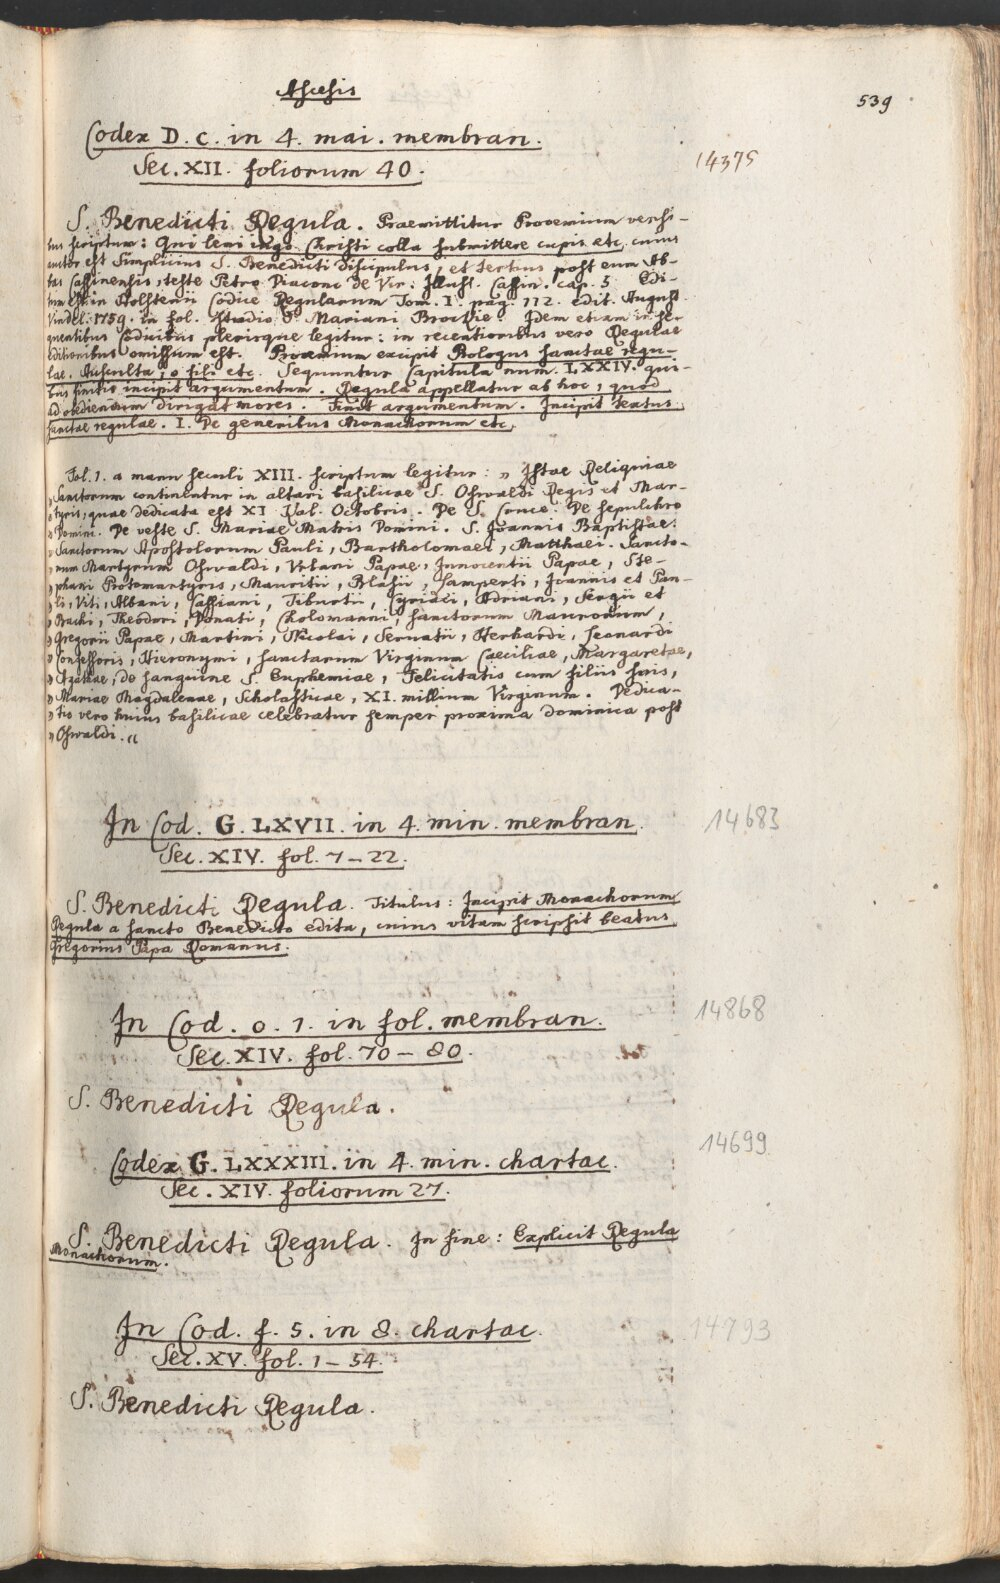 Ascesis
539
Codex D. c. in 4. mai. membran.
14375
Sec. XII. foliorum 40.
S. Benedicti Regula. Praemittitur Prooemium versi-
bus scriptum: Qui leni iugo Christi colla submittere cupis etc, cuius
auctor est Simplicius S. Benedicti discipulus, et tertius post eum Ab-
bas Cassinensis, teste Petro Diacono de Vir. Illust. Cassin. cap. 5. Edi-
tum est in Holstenii Codice Regularum Tom. I. pag. 112. edit. August.
Vindel. 1759. in fol. studio P. Mariani Brockie. Idem etiam in se-
quentibus Codicibus plerisque legitur: in recentioribus vero Regulae
editionibus omissum est. Prooemium excipit Prologus sanctae regu-
lae. Ausculta, o fili etc. Sequuntur Capitula num. LXXIV. qui-
bus finitis incipit argumentum. Regula appellatur ab hoc, quod
ad obedienciam dirigat mores. Finit argumentum. Incipit textus
sanctae regulae. I. De generibus Monachorum etc.
Fol. 1. a manu seculi XIII. scriptum legitur: „ Istae Reliquiae
„ Sanctorum continentur in altari basilicae S. Oswaldi Regis et Mar-
„ tyris, quae dedicata est XI. Kal. Octobris. De S. Cruce. De sepulchro
„ Domini. De veste S. Mariae Matris Domini. S. Joannis Baptistae.
„ Sanctorum Apostolorum Pauli, Bartholomaei, Matthaei. Sancto-
„ rum Martyrum Oswaldi, Urbani Papae, Innocentii Papae, Ste-
„ phani Protomartyris, Mauritii, Blasii, Lamperti, Joannis et Pau-
„ li, Viti, Albani, Cassiani, Tiburtii, Cyriaci, Adriani, Sergii et
„ Bachi, Theodori, Donati, Cholomanni, sanctorum Maurorum,
„ Gregorii Papae, Martini, Nicolai, Servatii, Herhardi, Leonardi
„ Confessoris, Hieronymi, sanctarum Virginum Caeciliae, Margaretae,
„ Agathae, de sanguine S. Euphemiae, Felicitatis cum filiis suis,
„ Mariae Magdalenae, Scholasticae, XI. millium Virginum. Dedica-
„ tio vero huius basilicae celebratur semper proxima dominica post
„ Oswaldi. “
In Cod. G. LXVII. in 4. min. membran.
14683
Sec. XIV. fol. 7 – 22.
S. Benedicti Regula. Titulus: Incipit Monachorum
Regula a sancto Benedicto edita, cuius vitam scripsit beatus
Gregorius Papa Romanus.
In Cod. o. 1. in fol. membran.
14868
Sec. XIV. fol. 70 – 80.
S. Benedicti Regula.
Codex G. LXXXIII. in 4. min. chartac.
14699
Sec. XIV. foliorum 27.
S. Benedicti Regula. In fine: Explicit Regula
Monachorum.
In Cod. f. 5. in 8. chartac.
14793
Sec. XV. fol. 1 – 54.
S. Benedicti Regula.